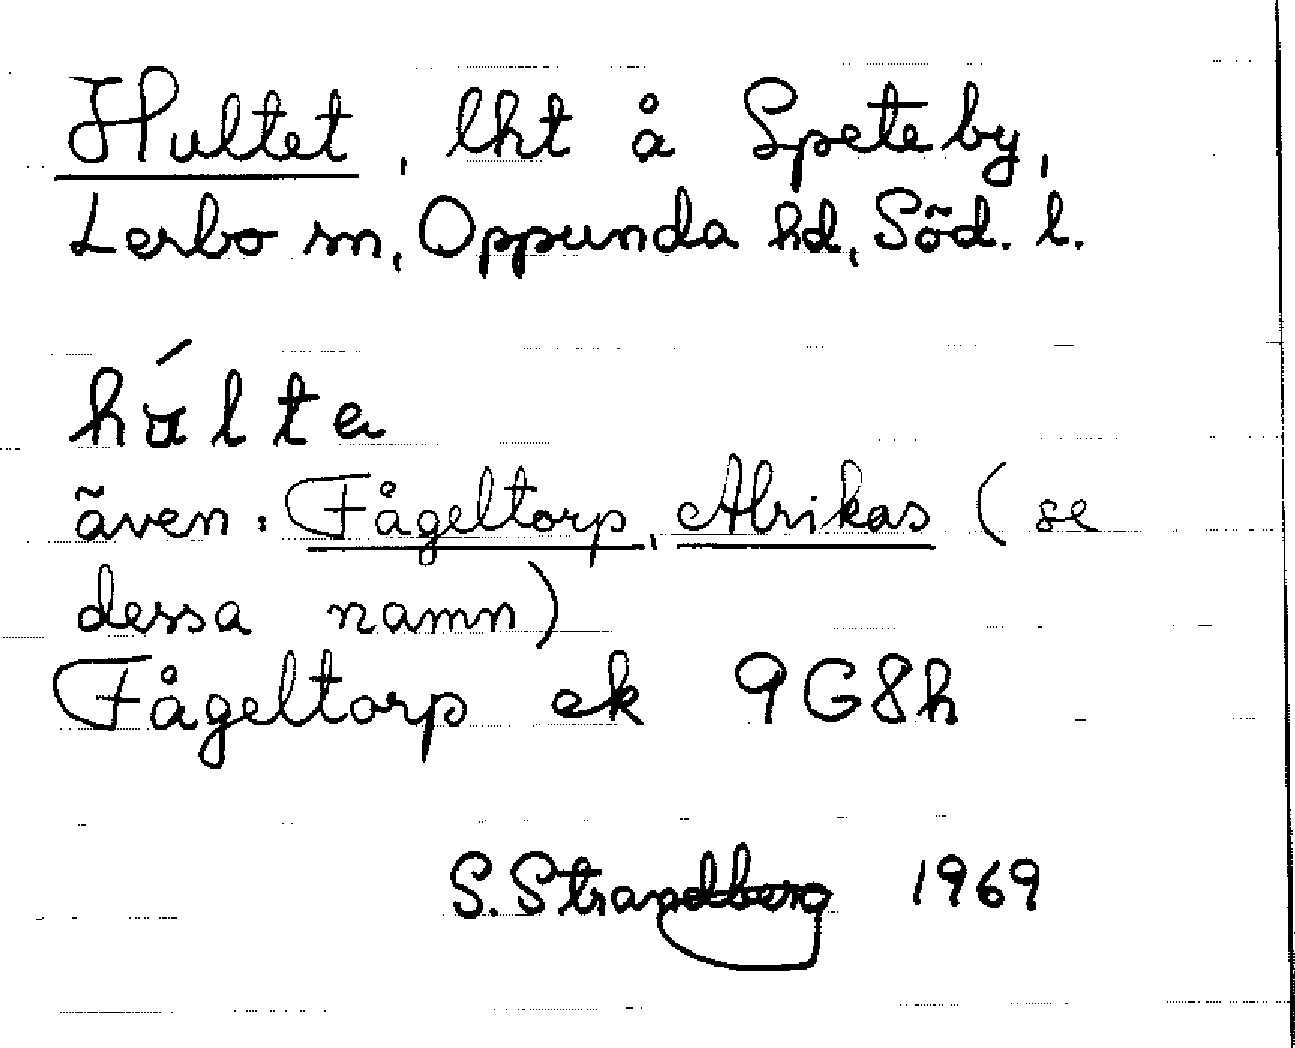 Hultet, lht å Speteby,
Lerbo sn, Oppunda hd, Söd. l.
húlte
även: Fågeltorp, Alrikas (se
dessa namn)
Fågeltorp ek 9G8h
S. Strandberg 1969